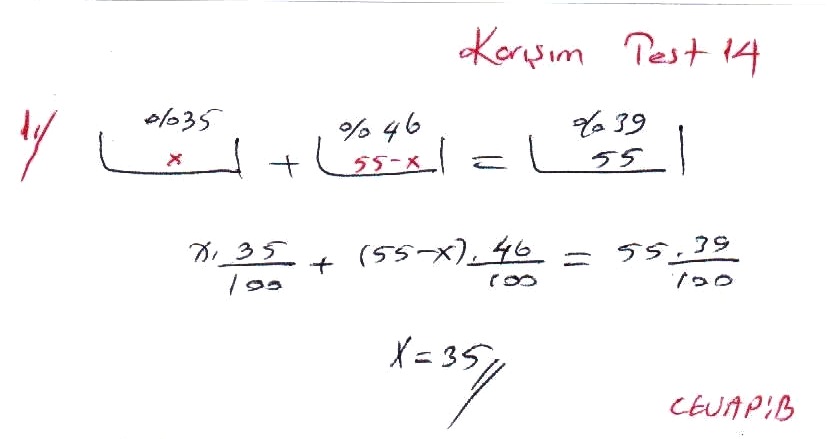 Karışım Test 14
1)
%35 %46 %39
x + 55-x = 55
x. 35/100 + (55-x). 46/100 = 55. 39/100
X = 35//
CEVAP:B